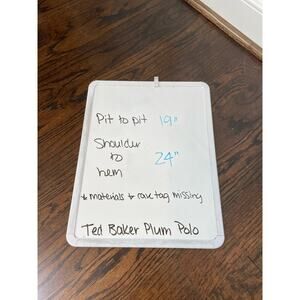 Pit to pit 19"
Shoulder
to 24"
hem
* materials & care tag missing
Ted Baker Plum Polo